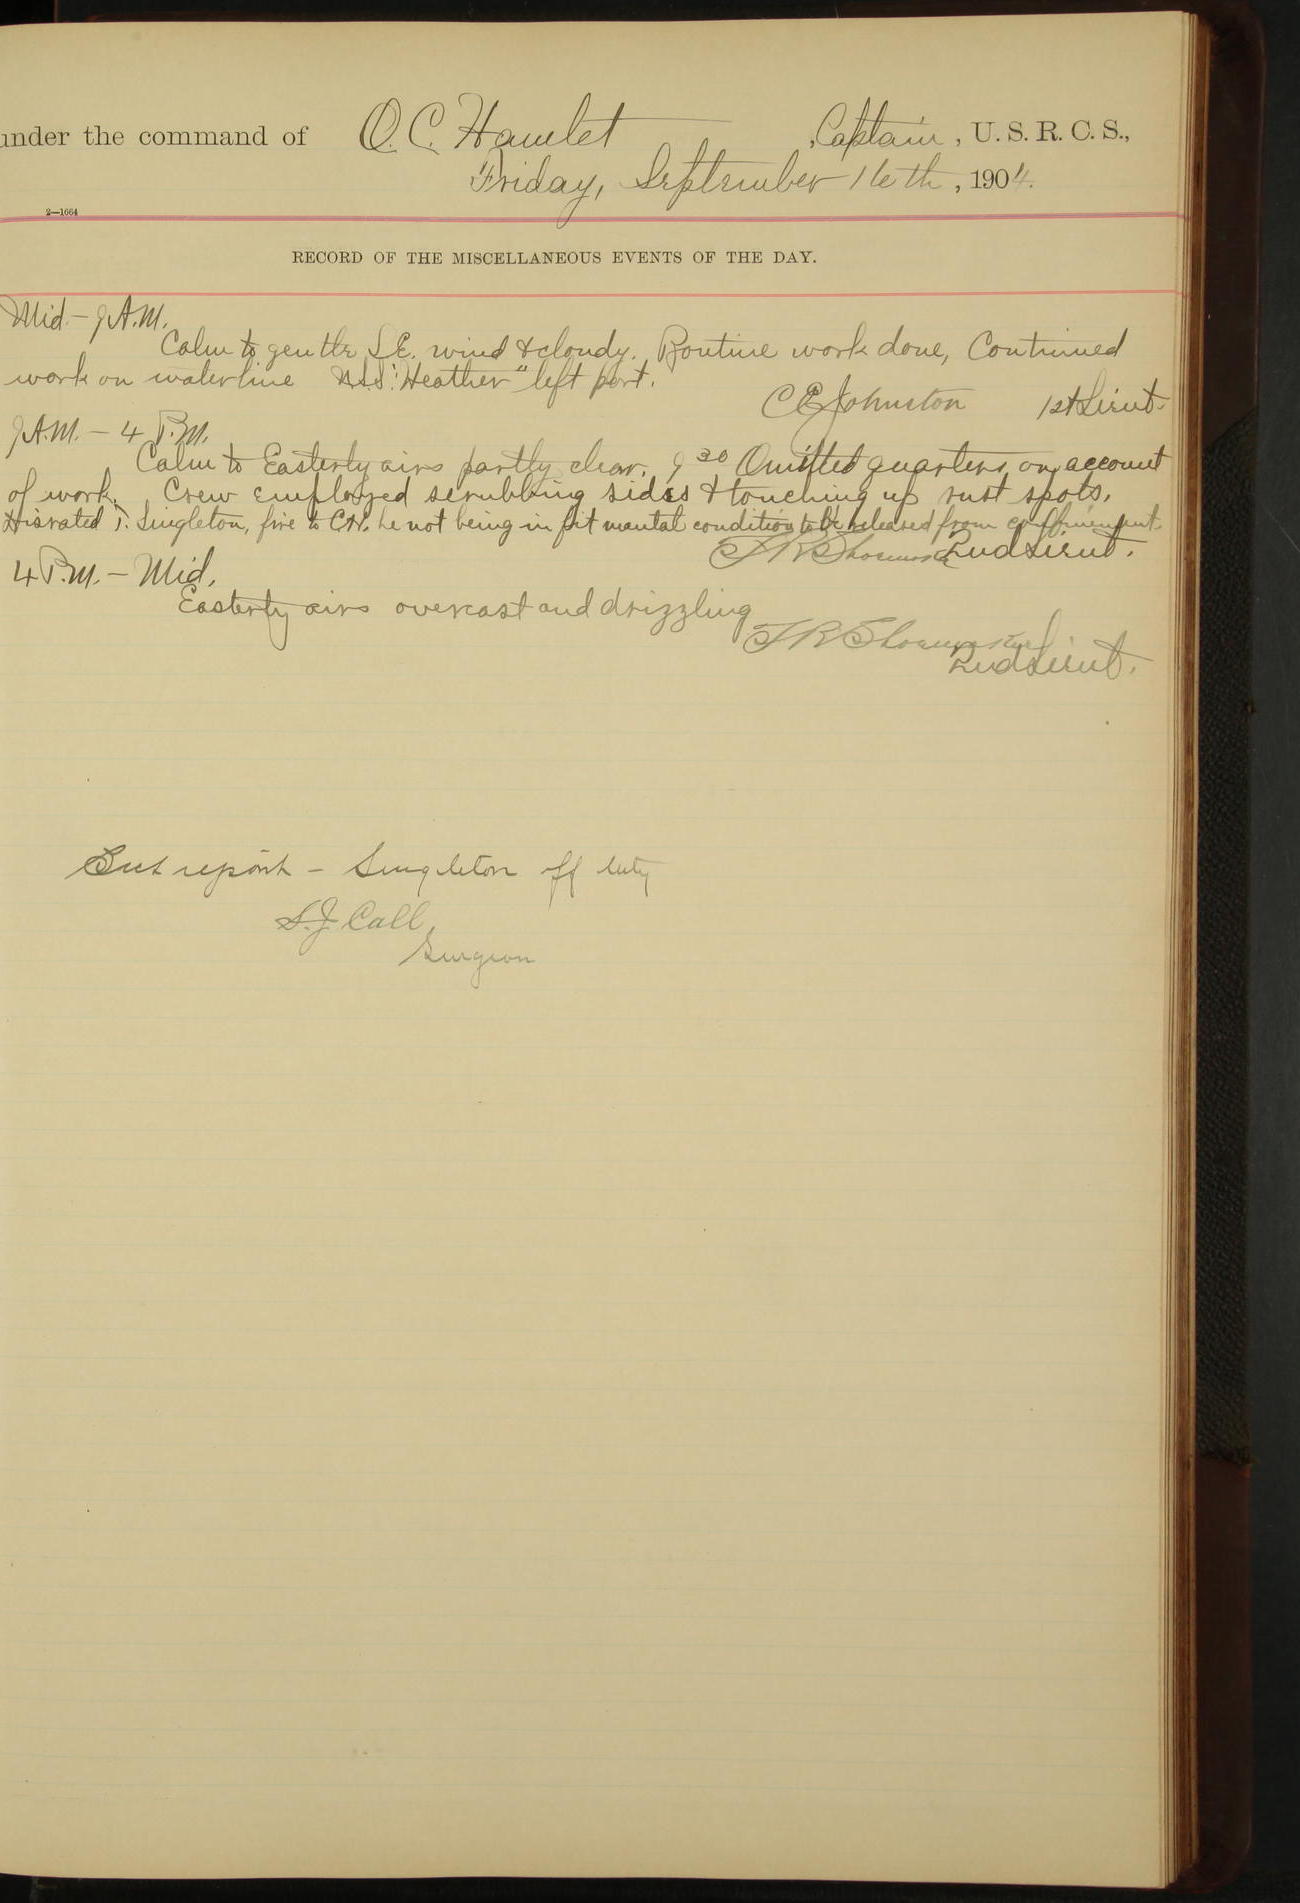 under the command of O. C. Hamlet, Captain, U. S. R. C. S.,
Friday, September 16th, 1904.
2—1664
RECORD OF THE MISCELLANEOUS EVENTS OF THE DAY.
Mid - 9 A.M.
Calm to gentle S.E. wind & cloudy. Routine work done, Continued
work on waterline "Heather" left port.
C E Johnston 1st Lieut.
9 A.M. - 4 P.M.
Calm to Easterly airs partly clear. 9 30 Omitted quarters on account
of work. Crew employed scrubbing sides & touching up rust spots.
Disrated T. Singleton, fire to he not being in fit mental condition to be released from confinement.
2nd Lieut.
4 P.M. - Mid.
Easterly airs overcast and drizzling
2nd Lieut.
report - Singleton off duty
S. J. Call,
Surgeon